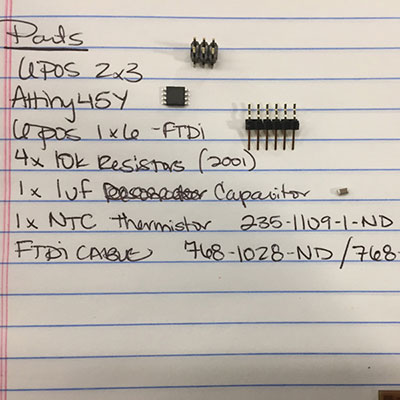 Parts
6POS 2x3
Attiny45V
6pos 1x6 -FTDi
4x 10k Resistors (2001)
1x 1uf Capacitor
1x NTC Thermistor 235-1109-1-ND
FTDi CABLE 768-1028-ND /768-